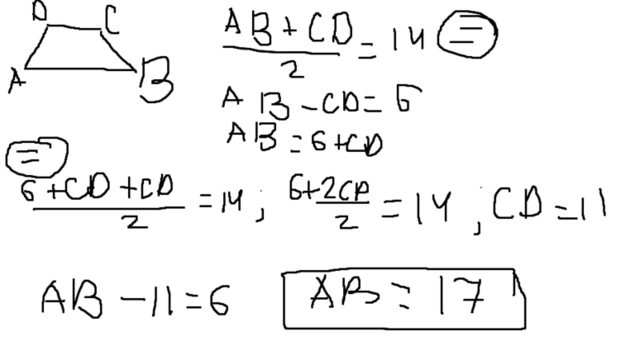 D C
A B
AB+CD/2 = 14 (=)
AB-CD=6
AB=6+CD
(=)
6+CD+CD/2 = 14; 6+2CD/2 = 14, CD=11
AB-11=6 AB=17